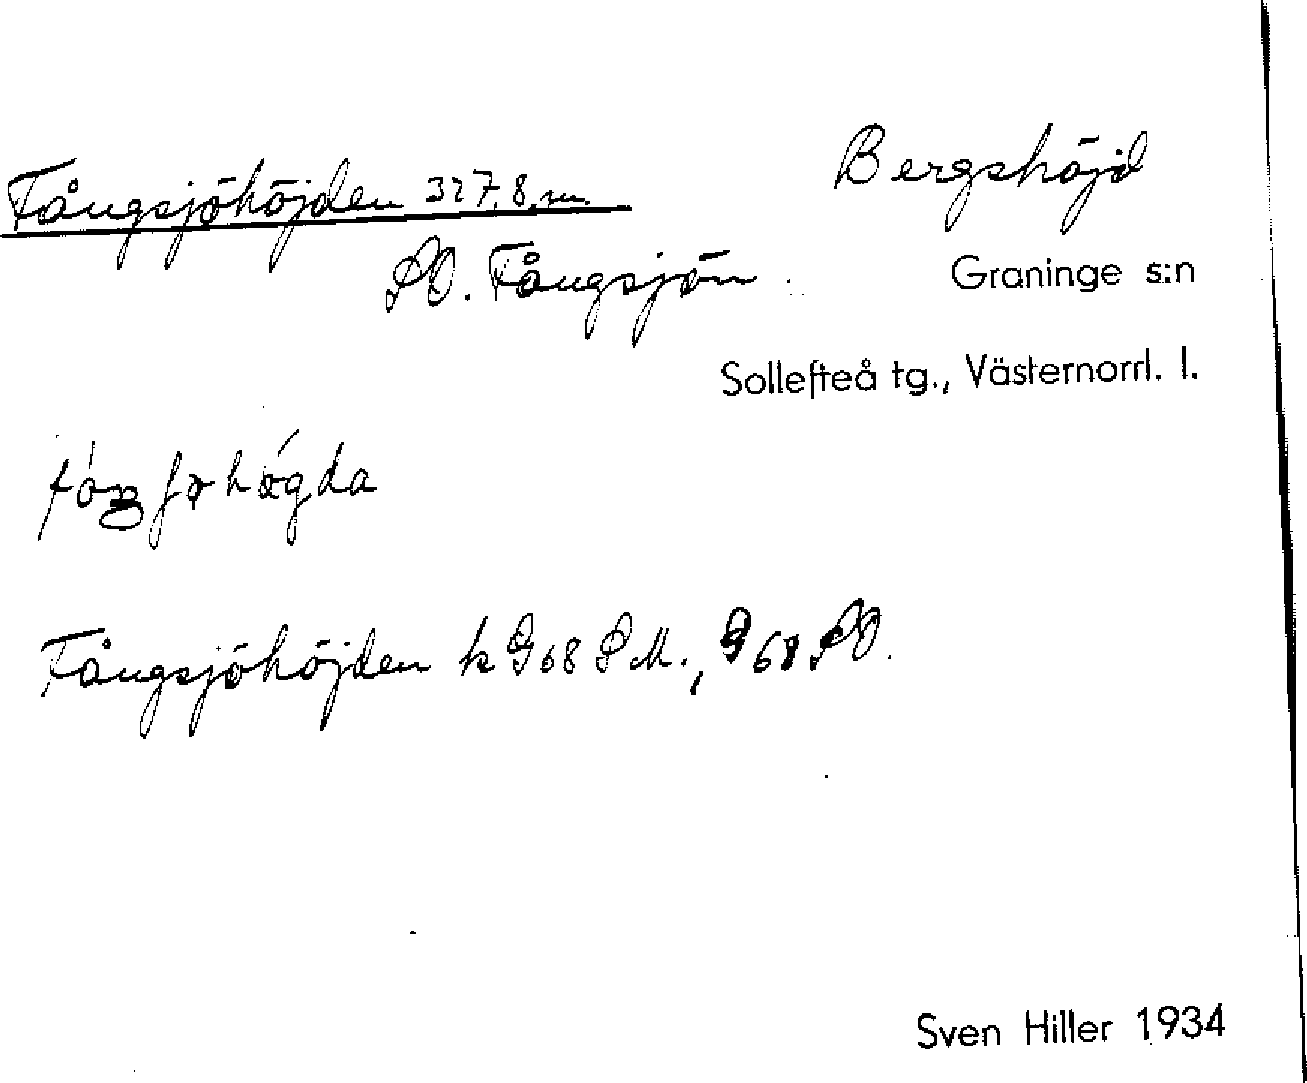 Tångsjöhöjden 327,8 m.
Bergshöjd
SO. Tångsjön.
Graninge s:n
Sollefteå tg., Västernorrl. l.
Tångsjöhöjden k G68 SM., G68 SO.
Sven Hiller 1934